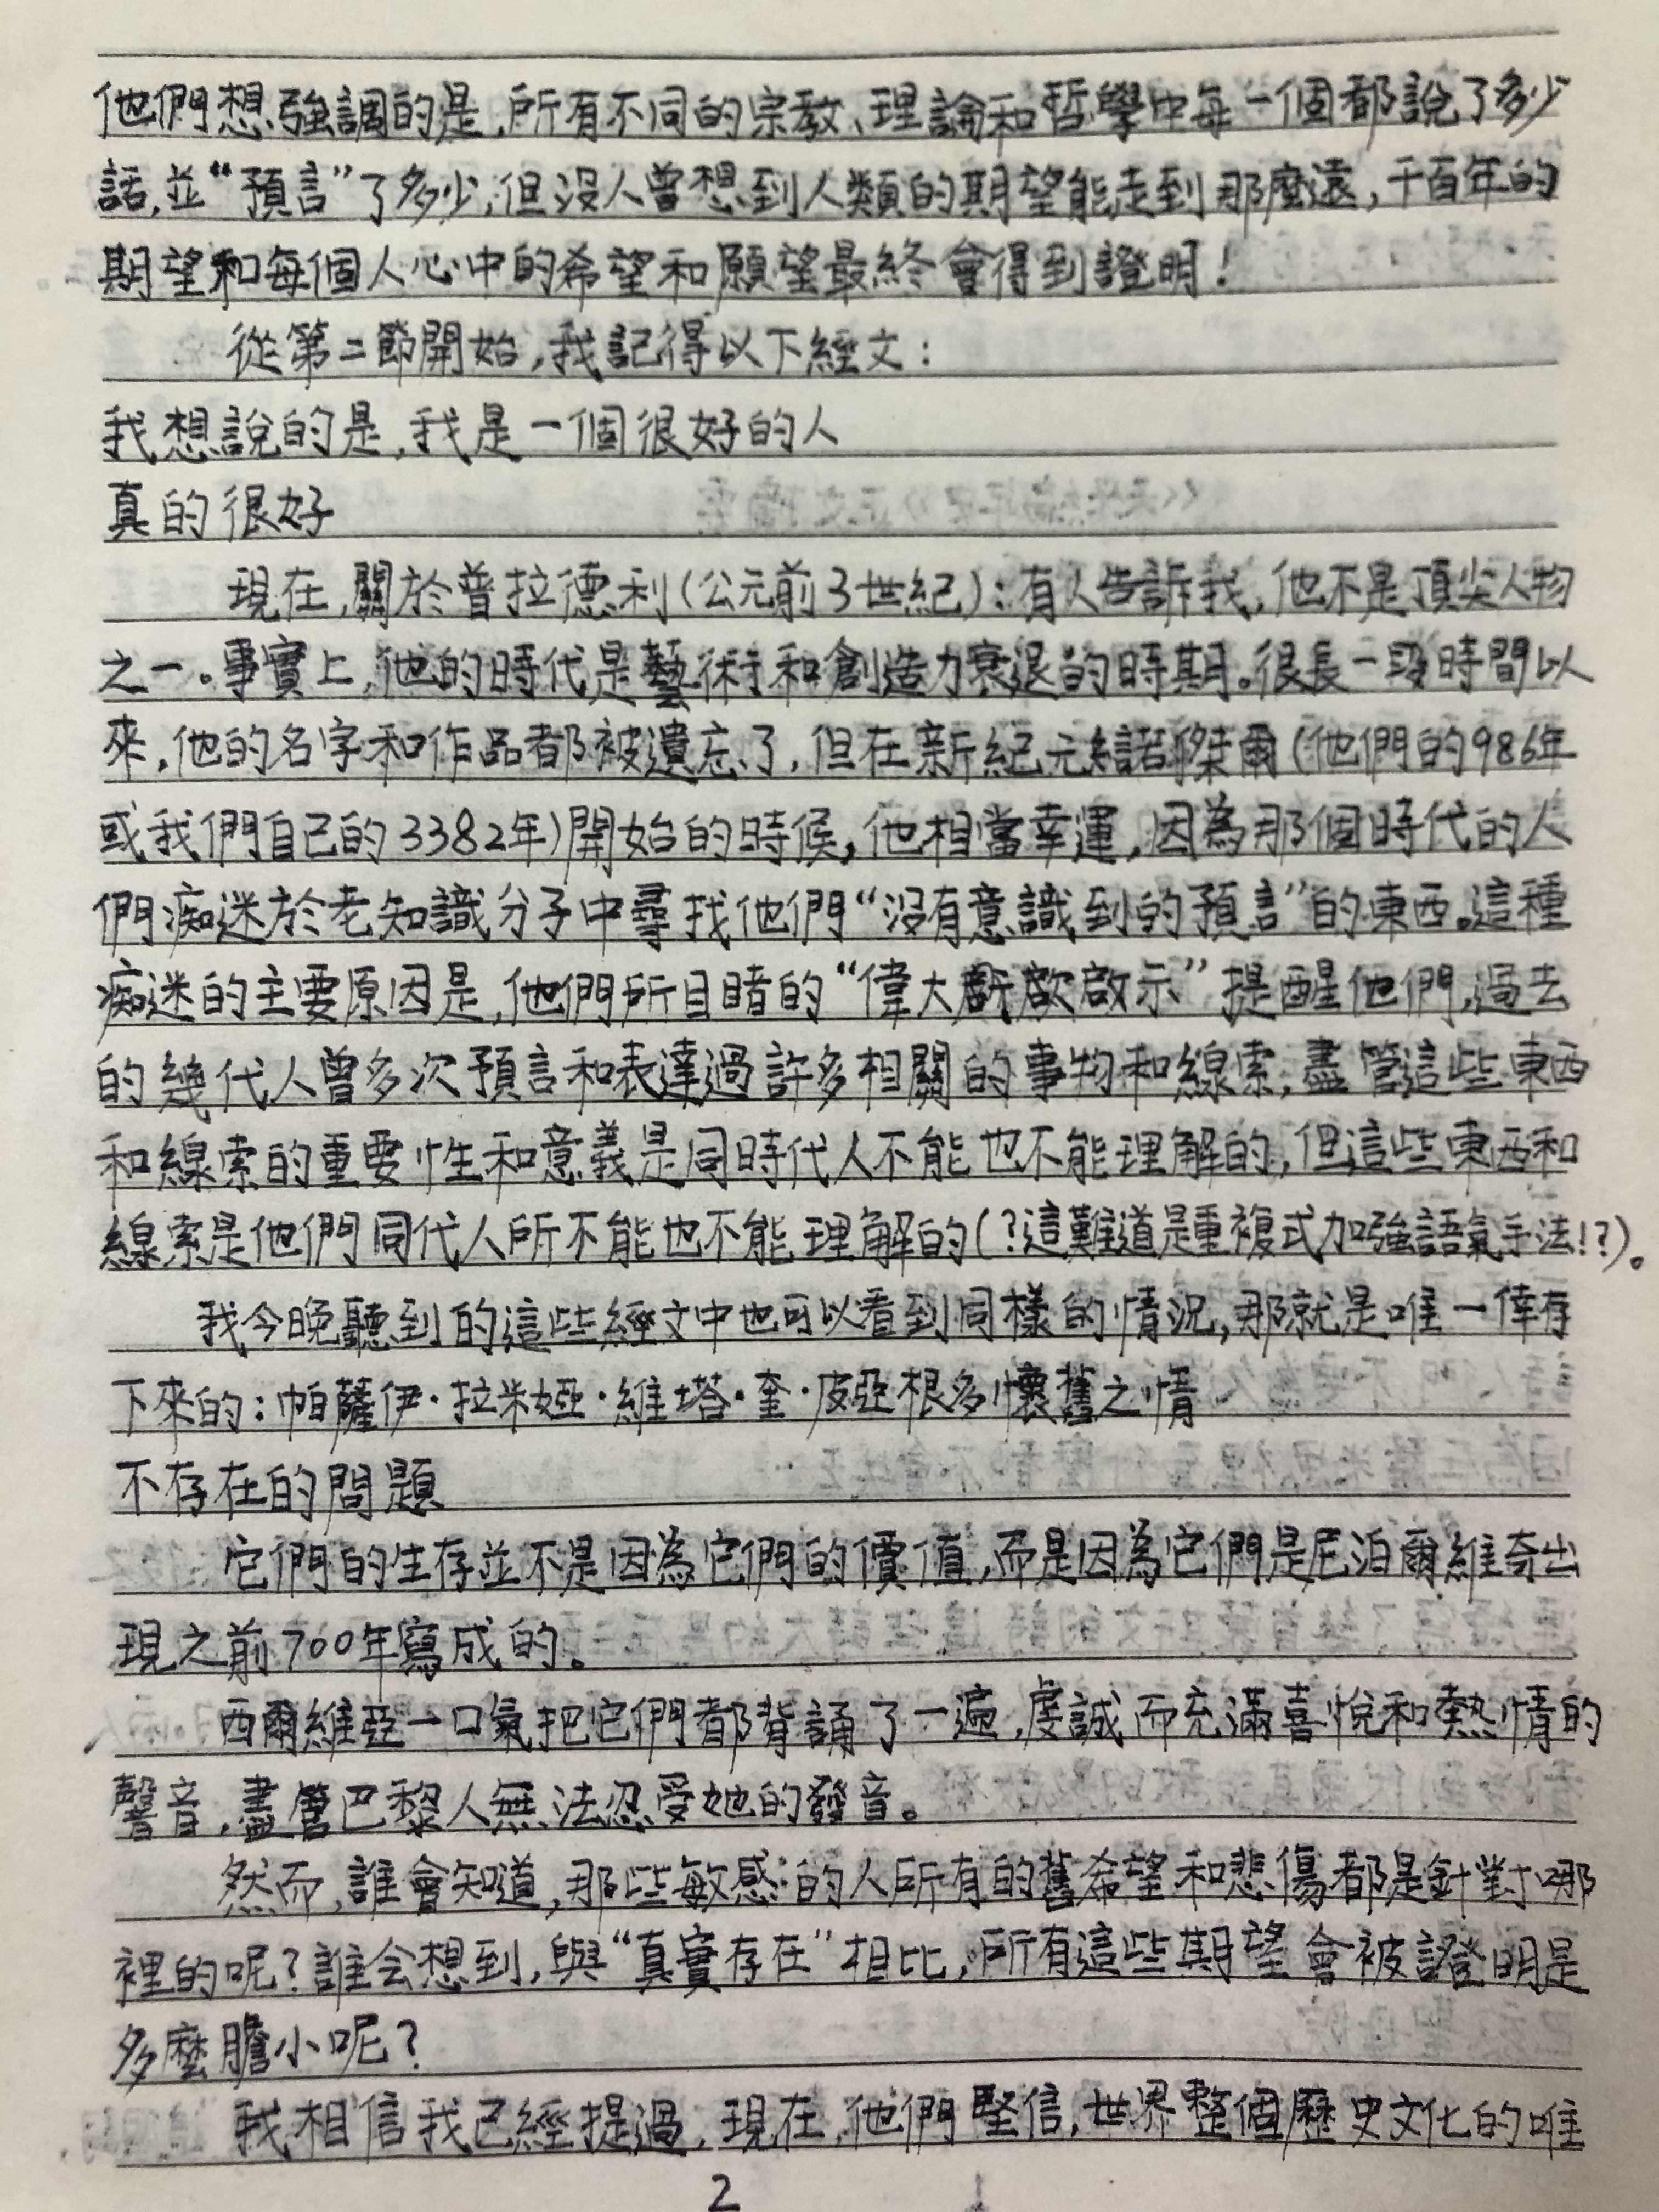 他們想強調的是，所有不同的宗教、理論和哲學中每一個都說了多少
話，並“預言”了多少，但沒人曾想到人類的期望能走到那麼遠，千百年的
期望和每個人心中的希望和願望最終會得到證明！
從第二節開始，我記得以下經文：
我想說的是，我是一個很好的人
真的很好
現在，關於普拉德利（公元前3世紀）：有人告訴我，他不是頂尖人物
之一。事實上，他的時代是藝術和創造力衰退的時期。很長一段時間以
來，他的名字和作品都被遺忘了，但在新紀元諾傑爾（他們的986年
或我們自己的3382年）開始的時候，他相當幸運，因為那個時代的人
們痴迷於老知識分子中尋找他們“沒有意識到的預言”的東西。這種
痴迷的主要原因是，他們所目睹的“偉大啟示”提醒他們，過去
的幾代人曾多次預言和表達過許多相關的事物和線索，盡管這些東西
和線索的重要性和意義是同時代人不能也不能理解的，但這些東西和
線索是他們同代人所不能也不能理解的（？這難道是重複式加強語氣手法！？）。
我今晚聽到的這些經文中也可以看到同樣的情況，那就是唯一倖存
下來的：帕薩伊·拉米婭·維塔·奎·皮亞根多懷舊之情
不存在的問題
它們的生存並不是因為它們的價值，而是因為它們是尼泊爾維奇出
現之前700年寫成的。
西爾維亞一口氣把它們都背誦了一遍，虔誠而充滿喜悅和熱情的
聲音，盡管巴黎人無法忍受她的發音。
然而，誰會知道，那些敏感的人所有的舊希望和悲傷都是針對哪
裡的呢？誰会想到，與“真實存在”相比，所有這些期望會被證明是
多麼膽小呢？
我相信我已經提過，現在，他們堅信，世界整個歷史文化的唯
2